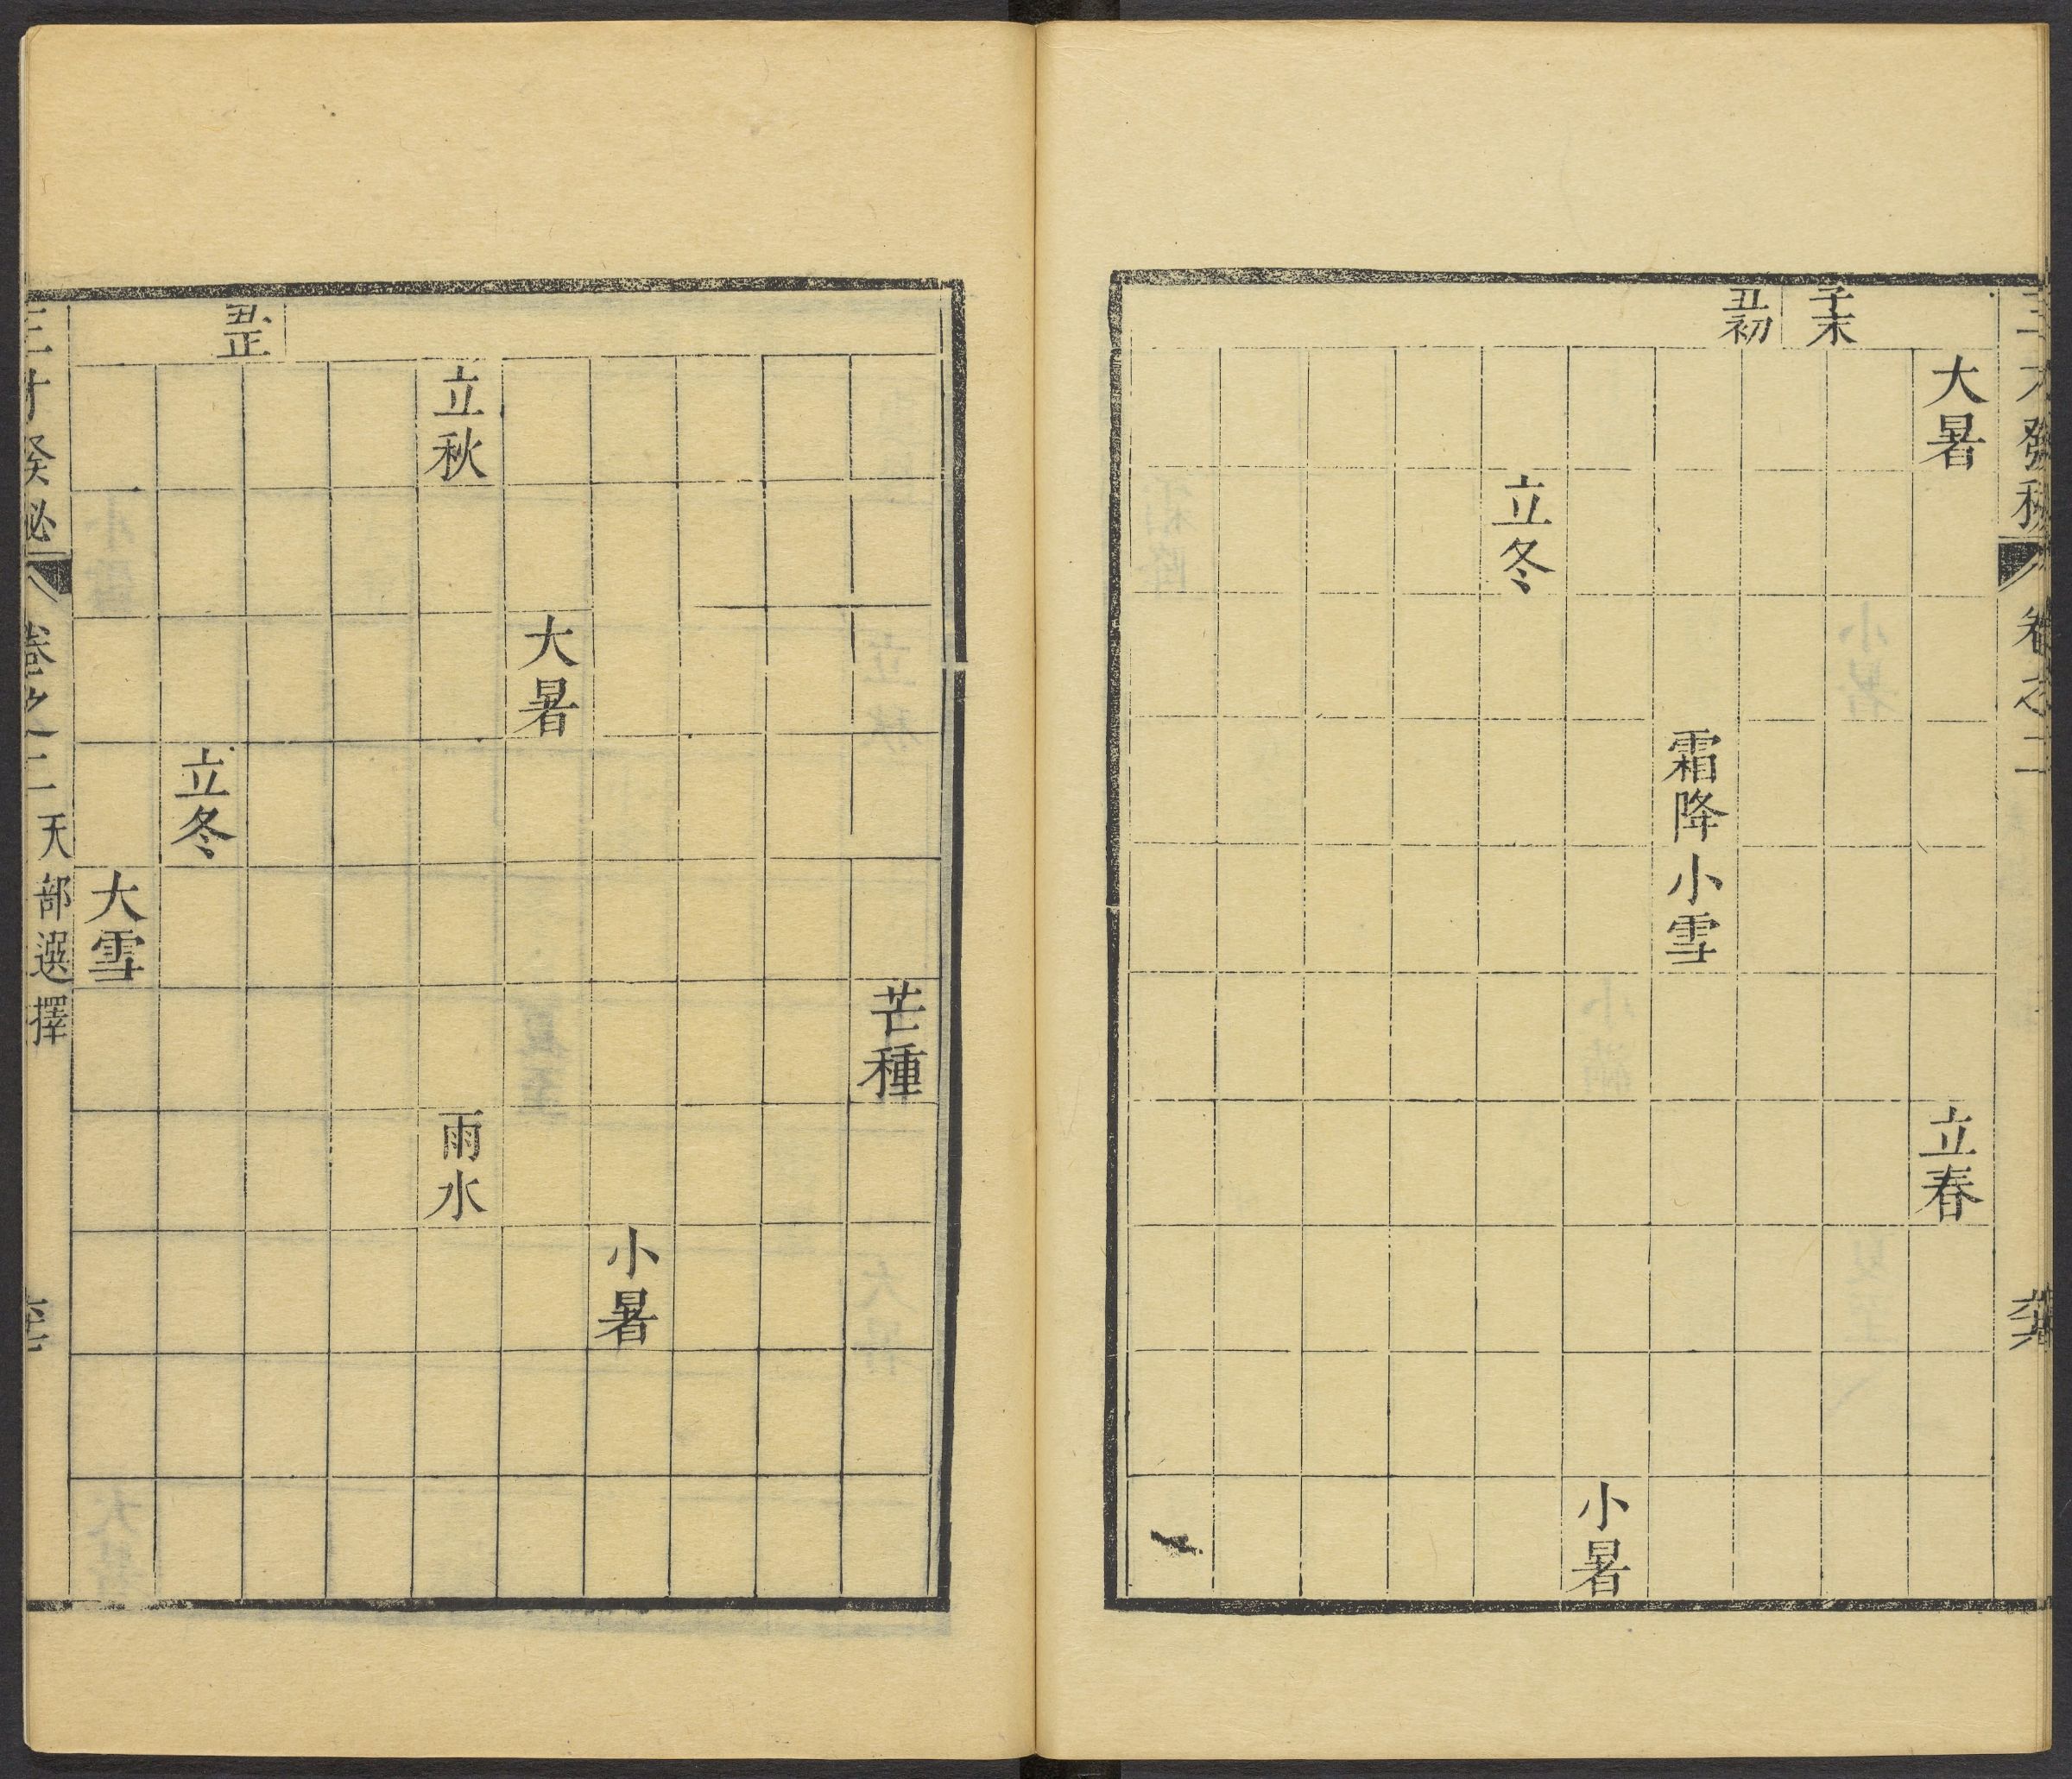 三才發秘
卷之二
子末
丑初
大暑
立春
霜降
小雪
小暑
立冬
丑正
芒種
小暑
大暑
立秋
雨水
立冬
大雪
三才發秘
卷之二
天部選擇